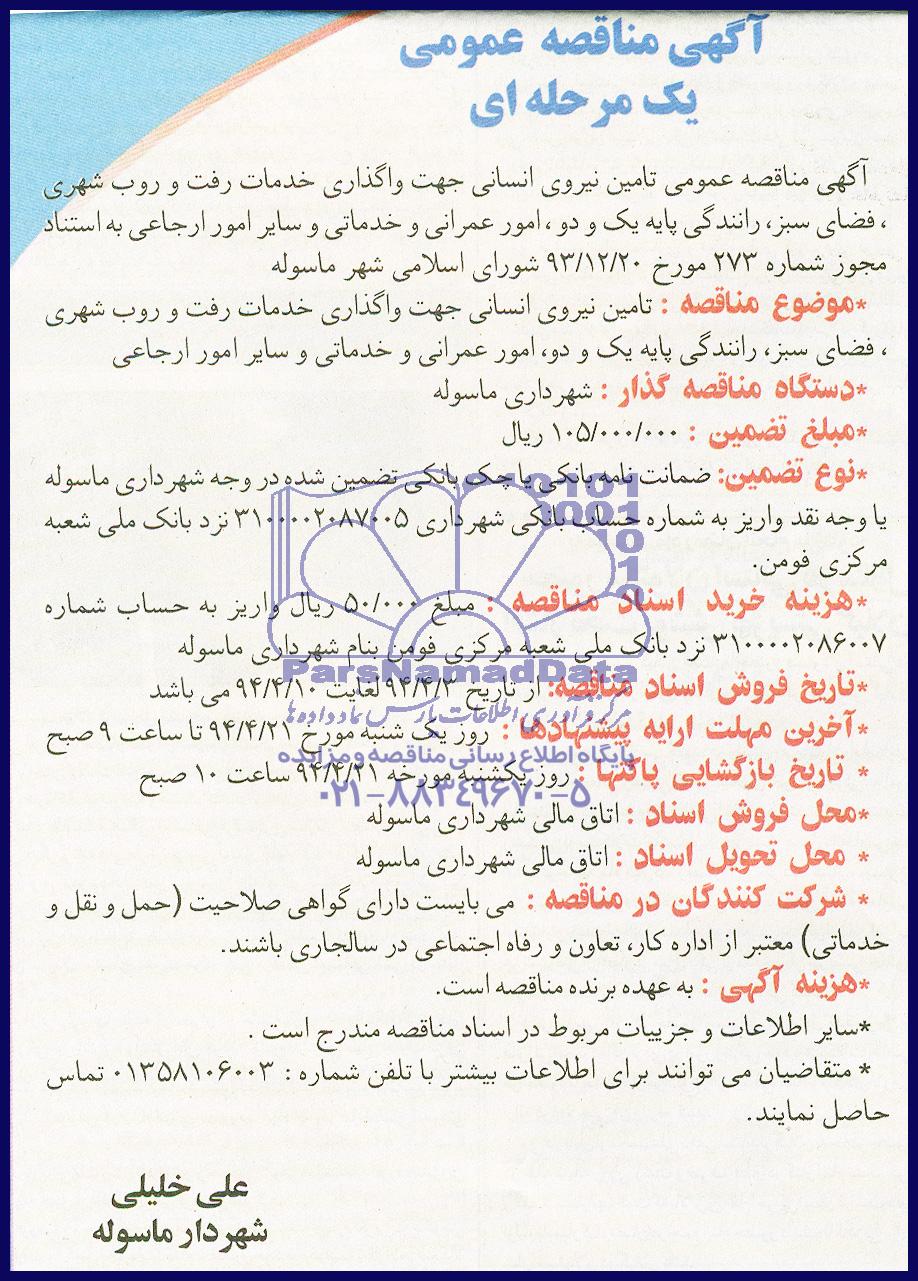 آگهی مناقصه عمومی
یک مرحله ای
آگهی مناقصه عمومی تامین نیروی انسانی جهت واگذاری خدمات رفت و روب شهری
، فضای سبز، رانندگی پایه یک و دو ، امور عمرانی و خدماتی و سایر امور ارجاعی به استناد
مجوز شماره ۲۷۳ مورخ ۹۳/۱۲/۲۰ شورای اسلامی شهر ماسوله
*موضوع مناقصه : تامین نیروی انسانی جهت واگذاری خدمات رفت و روب شهری
، فضای سبز، رانندگی پایه یک و دو، امور عمرانی و خدماتی و سایر امور ارجاعی
*دستگاه مناقصه گذار : شهرداری ماسوله
*مبلغ تضمین : ۱۰۵/۰۰۰/۰۰۰ ریال
*نوع تضمین: ضمانت نامه بانکی یا چک بانکی تضمین شده در وجه شهرداری ماسوله
یا وجه نقد واریز به شماره حساب بانکی شهرداری ۳۱۰۰۰۰۲۰۸۷۰۰۵ نزد بانک ملی شعبه
مرکزی فومن.
*هزینه خرید اسناد مناقصه : مبلغ ۵۰/۰۰۰ ریال واریز به حساب شماره
۳۱۰۰۰۰۲۰۸۶۰۰۷ نزد بانک ملی شعبه مرکزی فومن بنام شهرداری ماسوله
*تاریخ فروش اسناد مناقصه: از تاریخ ۹۴/۴/۳ لغایت ۹۴/۴/۱۰ می باشد
*آخرین مهلت ارایه پیشنهادها : روز یک شنبه مورخ ۹۴/۴/۲۱ تا ساعت ۹ صبح
* تاریخ بازگشایی پاکتها : روز یکشنبه مورخه ۹۴/۴/۲۱ ساعت ۱۰ صبح
*محل فروش اسناد : اتاق مالی شهرداری ماسوله
* محل تحویل اسناد : اتاق مالی شهرداری ماسوله
* شرکت کنندگان در مناقصه : می بایست دارای گواهی صلاحیت (حمل و نقل و
خدماتی) معتبر از اداره کار، تعاون و رفاه اجتماعی در سالجاری باشند.
*هزینه آگهی : به عهده برنده مناقصه است.
*سایر اطلاعات و جزییات مربوط در اسناد مناقصه مندرج است .
* متقاضیان می توانند برای اطلاعات بیشتر با تلفن شماره : ۰۱۳۵۸۱۰۶۰۰۳ تماس
حاصل نمایند.
علی خلیلی
شهردار ماسوله
0101
1001
10
10
0
ParsNamadData
مرکز فرآوری اطلاعات پارس نماد داده ها
پایگاه اطلاع رسانی مناقصه و مزایده
۰۲۱-۸۸۳۴۹۶۷۰-۵